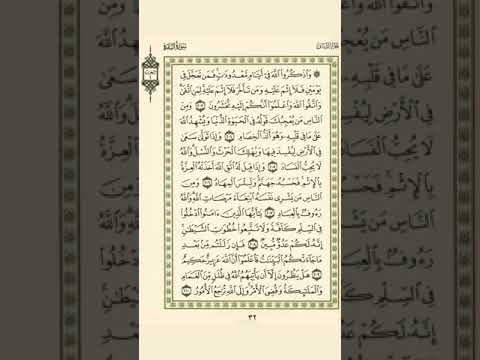 سُورَةُ البَقَرَةِ
الجُزْءُ الثَّانِي
۞ وَاذْكُرُوا اللَّهَ فِي أَيَّامٍ مَعْدُودَاتٍ فَمَنْ تَعَجَّلَ فِي
يَوْمَيْنِ فَلَا إِثْمَ عَلَيْهِ وَمَنْ تَأَخَّرَ فَلَا إِثْمَ عَلَيْهِ لِمَنِ اتَّقَىٰ
وَاتَّقُوا اللَّهَ وَاعْلَمُوا أَنَّكُمْ إِلَيْهِ تُحْشَرُونَ ٢٠٣ وَمِنَ
النَّاسِ مَنْ يُعْجِبُكَ قَوْلُهُ فِي الْحَيَوٰةِ الدُّنْيَا وَيُشْهِدُ اللَّهَ
عَلَىٰ مَا فِي قَلْبِهِ وَهُوَ أَلَدُّ الْخِصَامِ ٢٠٤ وَإِذَا تَوَلَّىٰ سَعَىٰ
فِي الْأَرْضِ لِيُفْسِدَ فِيهَا وَيُهْلِكَ الْحَرْثَ وَالنَّسْلَ وَاللَّهُ
لَا يُحِبُّ الْفَسَادَ ٢٠٥ وَإِذَا قِيلَ لَهُ اتَّقِ اللَّهَ أَخَذَتْهُ الْعِزَّةُ
بِالْإِثْمِ فَحَسْبُهُ جَهَنَّمُ وَلَبِئْسَ الْمِهَادُ ٢٠٦ وَمِنَ
النَّاسِ مَنْ يَشْرِي نَفْسَهُ ابْتِغَاءَ مَرْضَاتِ اللَّهِ وَاللَّهُ
رَءُوفٌ بِالْعِبَادِ ٢٠٧ يَٰأَيُّهَا الَّذِينَ ءَامَنُوا ادْخُلُوا
فِي السِّلْمِ كَافَّةً وَلَا تَتَّبِعُوا خُطُوَٰتِ الشَّيْطَٰنِ
إِنَّهُ لَكُمْ عَدُوٌّ مُبِينٌ ٢٠٨ فَإِنْ زَلَلْتُمْ مِنْ بَعْدِ
مَا جَاءَتْكُمُ الْبَيِّنَٰتُ فَاعْلَمُوا أَنَّ اللَّهَ عَزِيزٌ حَكِيمٌ
٢٠٩ هَلْ يَنْظُرُونَ إِلَّا أَنْ يَأْتِيَهُمُ اللَّهُ فِي ظُلَلٍ مِنَ الْغَمَامِ
وَالْمَلَٰئِكَةُ وَقُضِيَ الْأَمْرُ وَإِلَى اللَّهِ تُرْجَعُ الْأُمُورُ ٢١٠
٣٢